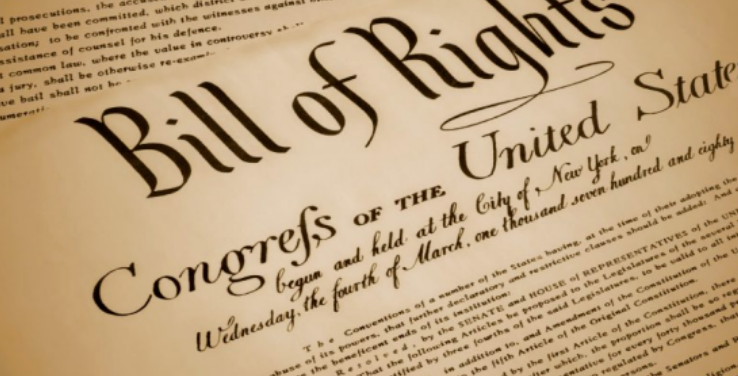 l prosecutions, the accus
all have been committed, which district
sation; to be confronted with the witnesses against
ssistance of counsel for his defence.
t common law, where the value in controversy shall
a jury, shall be otherwise re-exam
ve bail shall not be
umerati
Bill of Rights
Congreſs OF THE United State
begun and held at the City of New York, on
Wednesday, the fourth of March, one thousand seven hundred and eighty
The Conventions of a number of the States having, at the time of their adopting the
abuse of its powers, that further declaratory and restrictive clauses should be added: And
the beneficent ends of its institution:
Resolved, by the SENATE and HOUSE of REPRESENTATIVES of the UNI
That the following Articles be proposed to the Legislatures of the several
ratified by three fourths of the said Legislatures, to be valid to all int
in addition to, and Amendment of the Constitution of the U
the fifth Article of the Original Constitution.
by the first Article of the Constitution, there
after which, the proportion shall be so reg
Representative for every forty thousand p
so regulated by Congress, that
the Senators and
religion